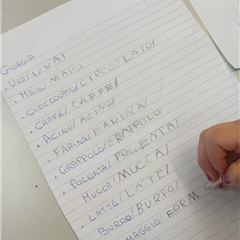 GIORGIA
• UVA/UVA/
• MAIS/MAIS/
• CIOCCOLATO/CIOCCOLATO/
• CAFFÈ/CAFFE/
• ACINO/ACINO/
• FARINO/FARINA/
• GRAPPOLO/GRAPPOLO/
• POLENTA/POLENTA/
• MUCCA/MUCCA/
• LATTE/LATE/
• BURRO/BURRO/
MAGGIO/FORM